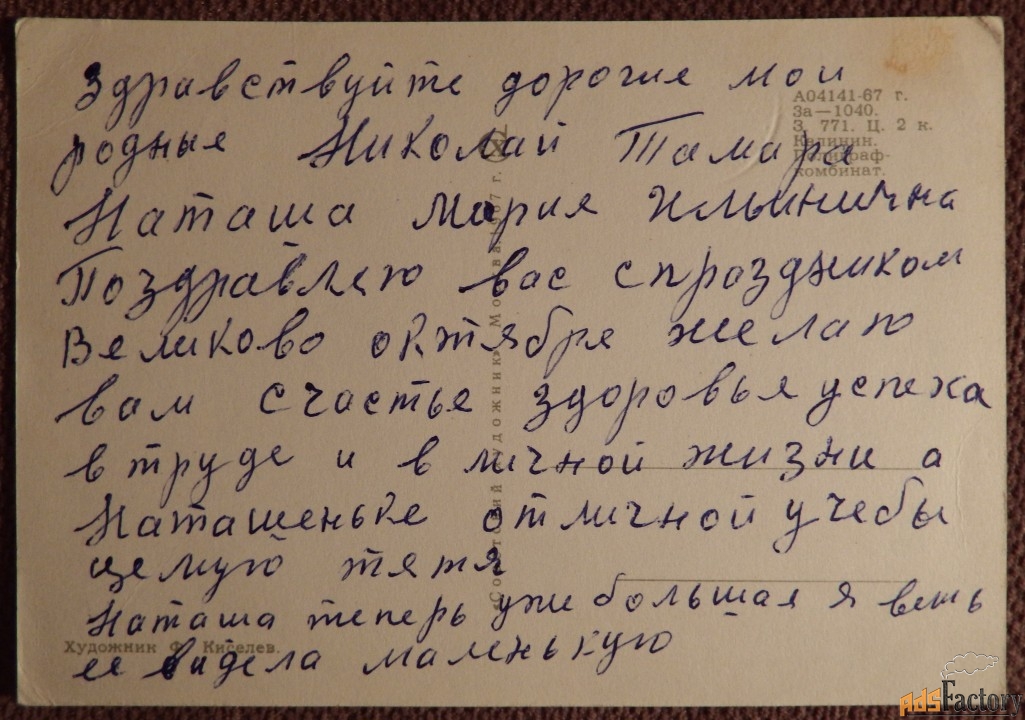 Здравствуйте дорогие мои
родные Николай Тамара
Наташа Мария Ильинична
Поздравлею вас с праздником
Великово октября желаю
вам счастье здоровья успеха
в труде и в личной жизни а
Наташеньке отличной учебы
целую тётя
Наташа теперь уже большая я веть
ее видела маленькую
А04141-67 г.
За—1040.
З. 771. Ц. 2 к.
Калинин.
Полиграф-
комбинат.
«Советский художник» Москва 1967 г.
Художник Ф. Киселев.
AdsFactory